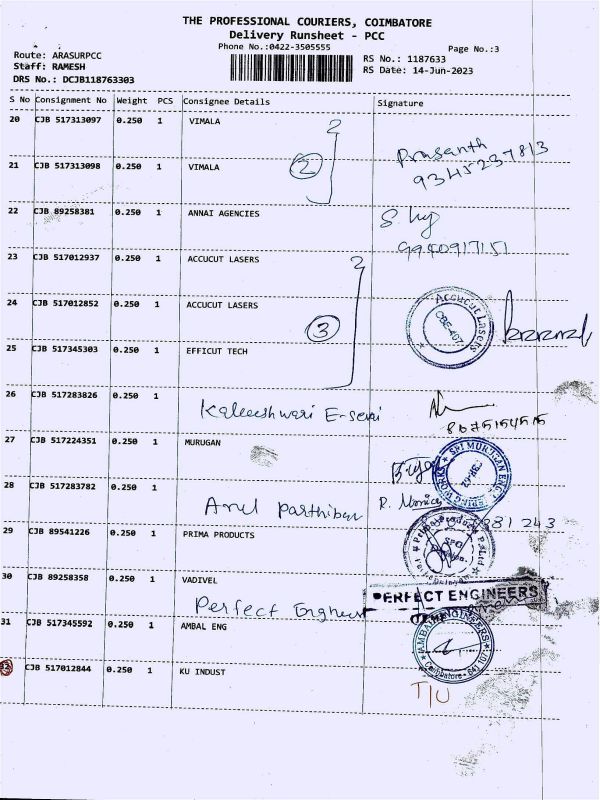 THE PROFESSIONAL COURIERS, COIMBATORE
Delivery Runsheet - PCC
Phone No.:0422-3505555
Page No.:3
Route: ARASURPCC
RS No.: 1187633
Staff: RAMESH
RS Date: 14-Jun-2023
DRS No.: DCJB118763303
S No Consignment No Weight PCS Consignee Details Signature
20 CJB 517313097 0.250 1 VIMALA
2 Prasanth
21 CJB 517313098 0.250 1 VIMALA
22 CJB 89258381 0.250 1 ANNAI AGENCIES
9940917151
23 CJB 517012937 0.250 1 ACCUCUT LASERS
24 CJB 517012852 0.250 1 ACCUCUT LASERS
Accucut Lasers
3
25 CJB 517345303 0.250 1 EFFICUT TECH
26 CJB 517283826 0.250 1
Kaleeshwari E-sevai
27 CJB 517224351 0.250 1 MURUGAN
SRI MURUGAN ENGINEERING WORKS
28 CJB 517283782 0.250 1
Arul Parthiban
29 CJB 89541226 0.250 1 PRIMA PRODUCTS
30 CJB 89258358 0.250 1 VADIVEL
PERFECT ENGINEERS
Perfect Engineers
31 CJB 517345592 0.250 1 AMBAL ENG
AMBAL ENGINEERS
Coimbatore - 641 107
CJB 517012844 0.250 1 KU INDUST
T/U